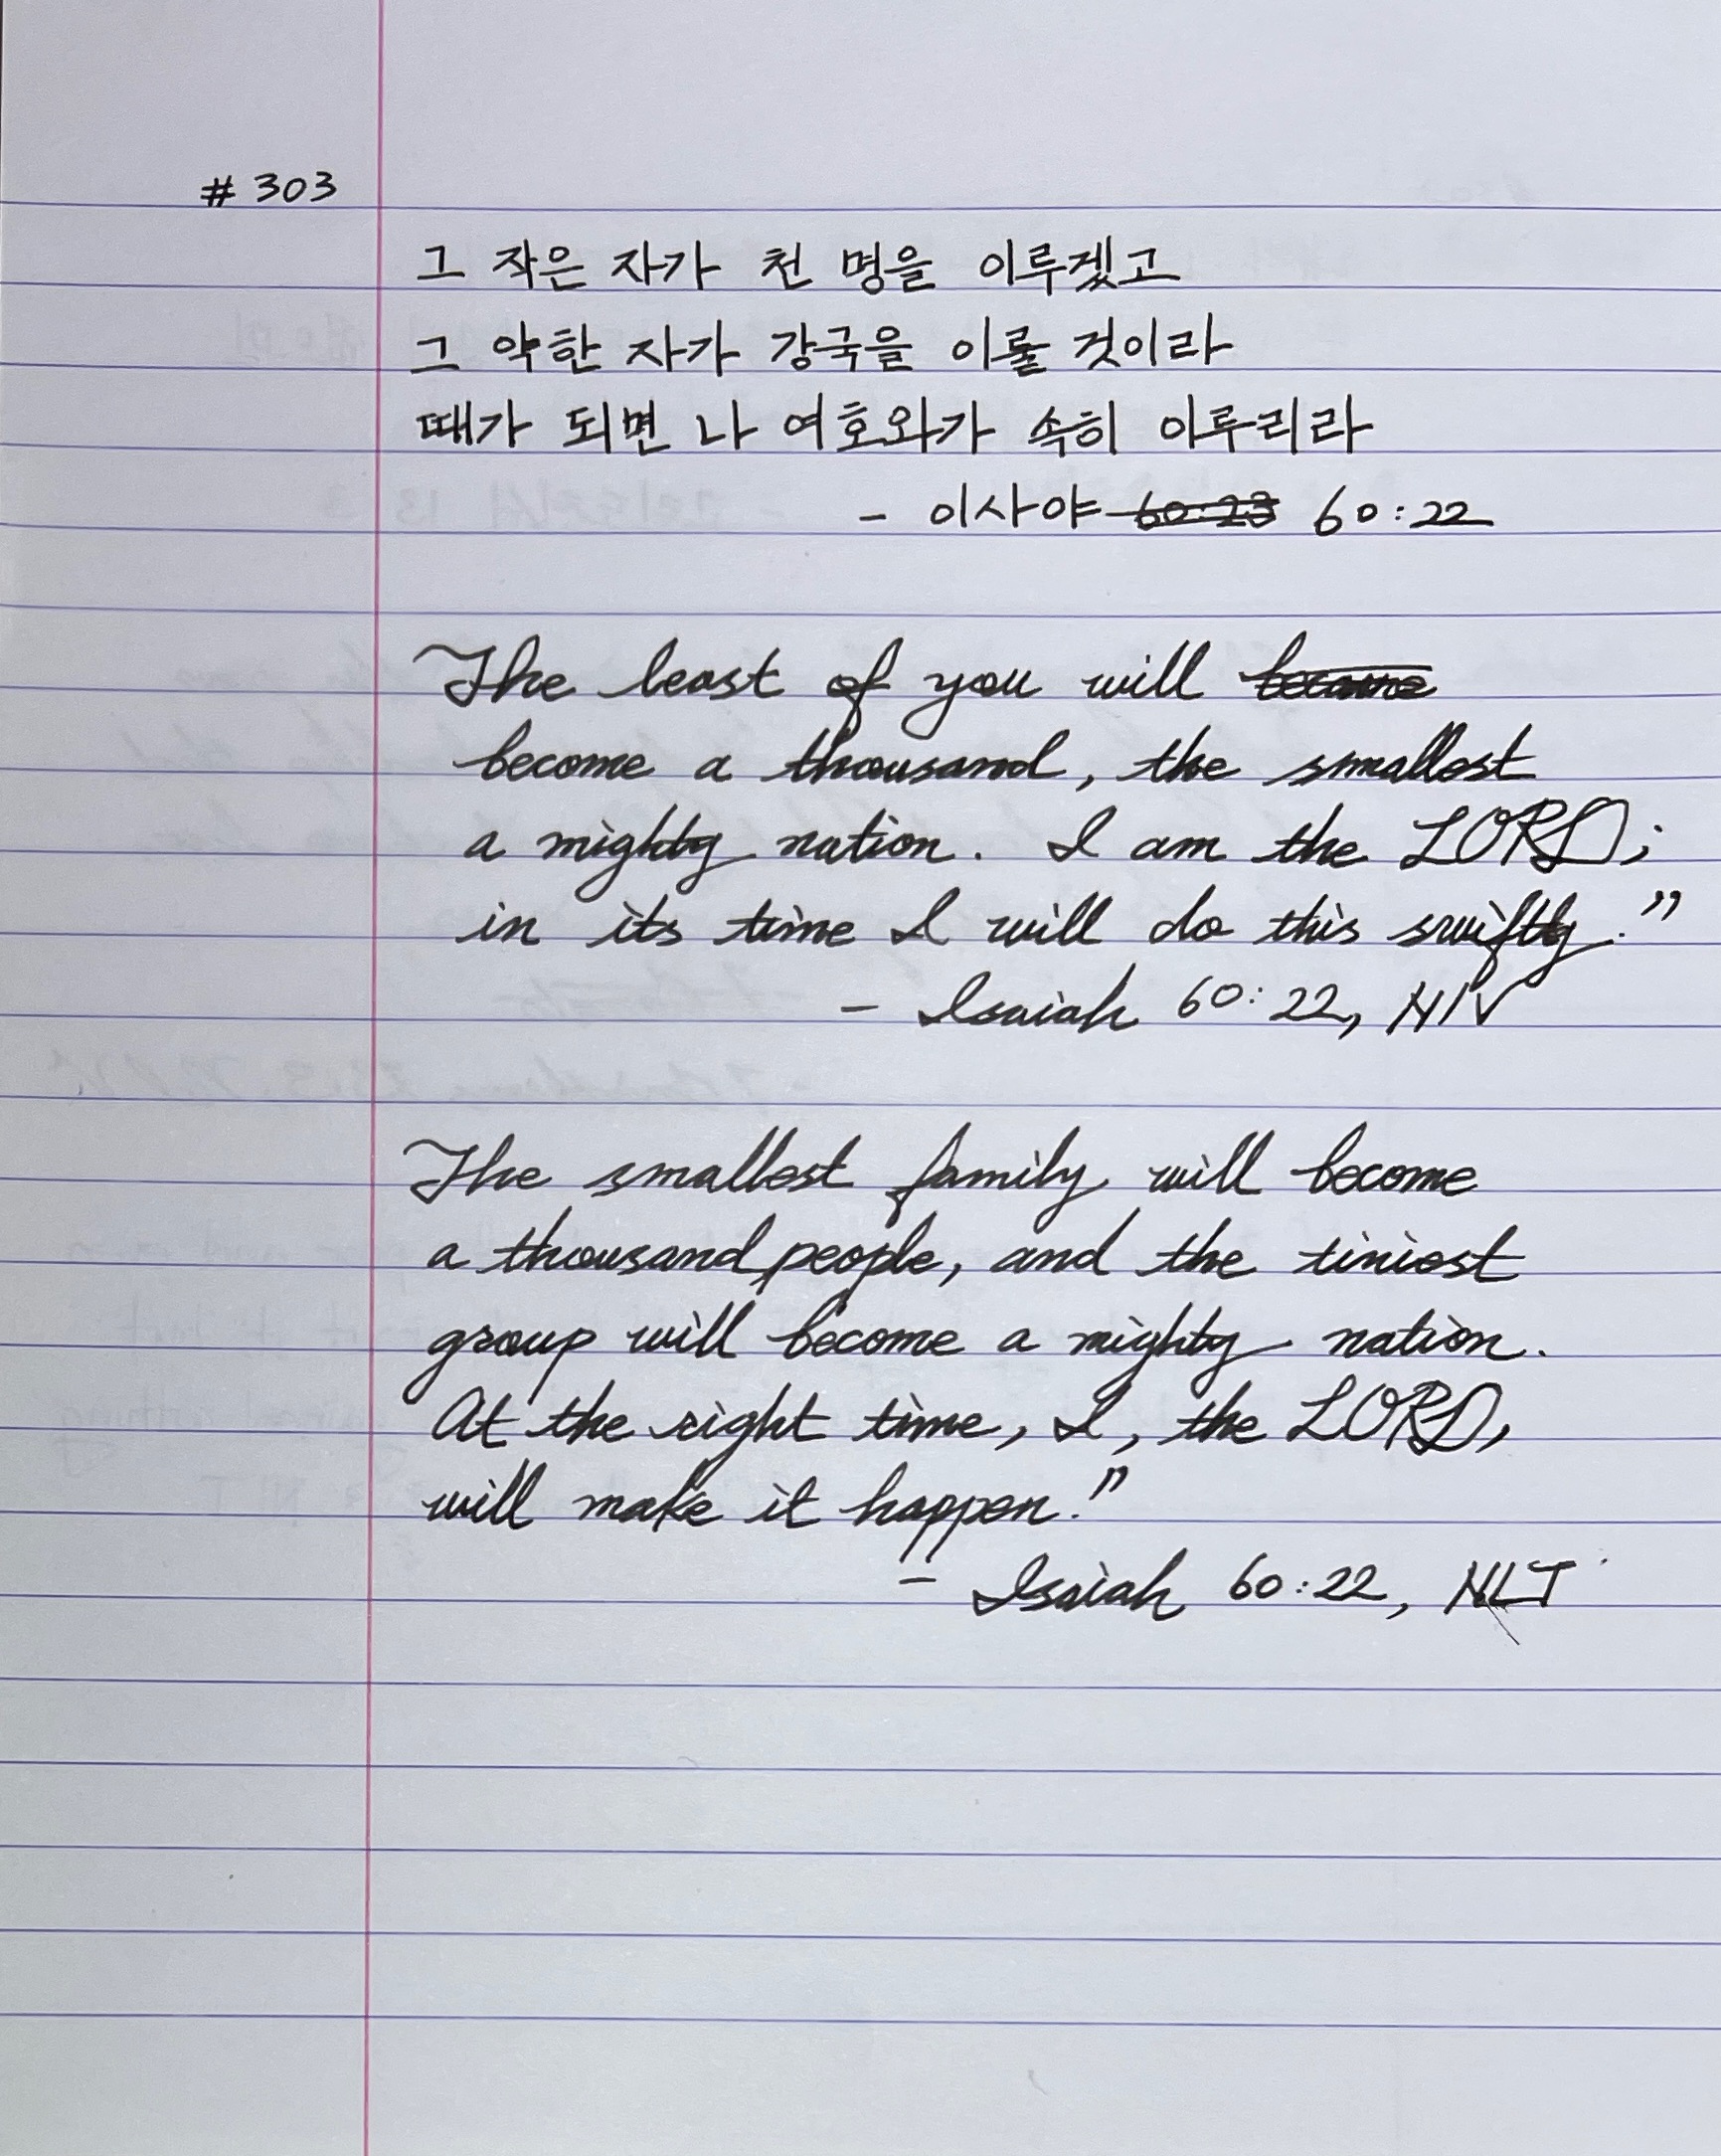 # 303
그 작은 자가 천 명을 이루겠고
그 약한 자가 강국을 이룰 것이라
때가 되면 나 여호와가 속히 이루리라
- 이사야 60:23 60:22
The least of you will became
become a thousand, the smallest
a mighty nation. I am the LORD;
in its time I will do this swiftly."
- Isaiah 60:22, NIV
The smallest family will become
a thousand people, and the tiniest
group will become a mighty nation.
At the right time, I, the LORD,
will make it happen."
- Isaiah 60:22, NLT